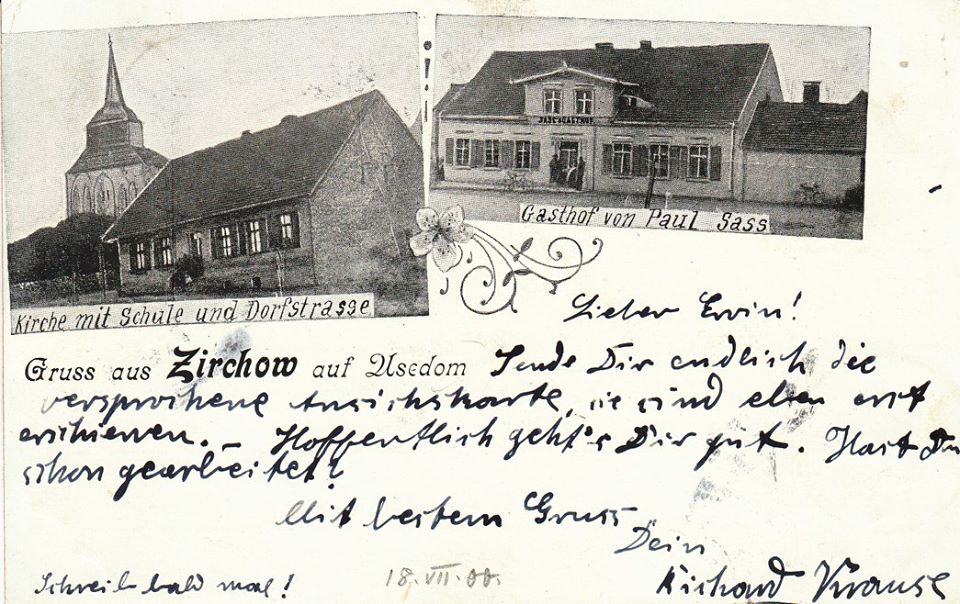 SASS'S GASTHOF
Gasthof von Paul Sass
Kirche mit Schule und Dorfstrasse
Gruss aus Zirchow auf Usedom
Lieber Erwin!
Sende Dir endlich die
versprochene Ansichskarte, sie sind eben erst
erschienen. – Hoffentlich geht's Dir gut. Hast Du
schon gearbeitet?
Mit bestem Gruss
Dein
Richard Krause
Schreib bald mal!
18.VII.00.